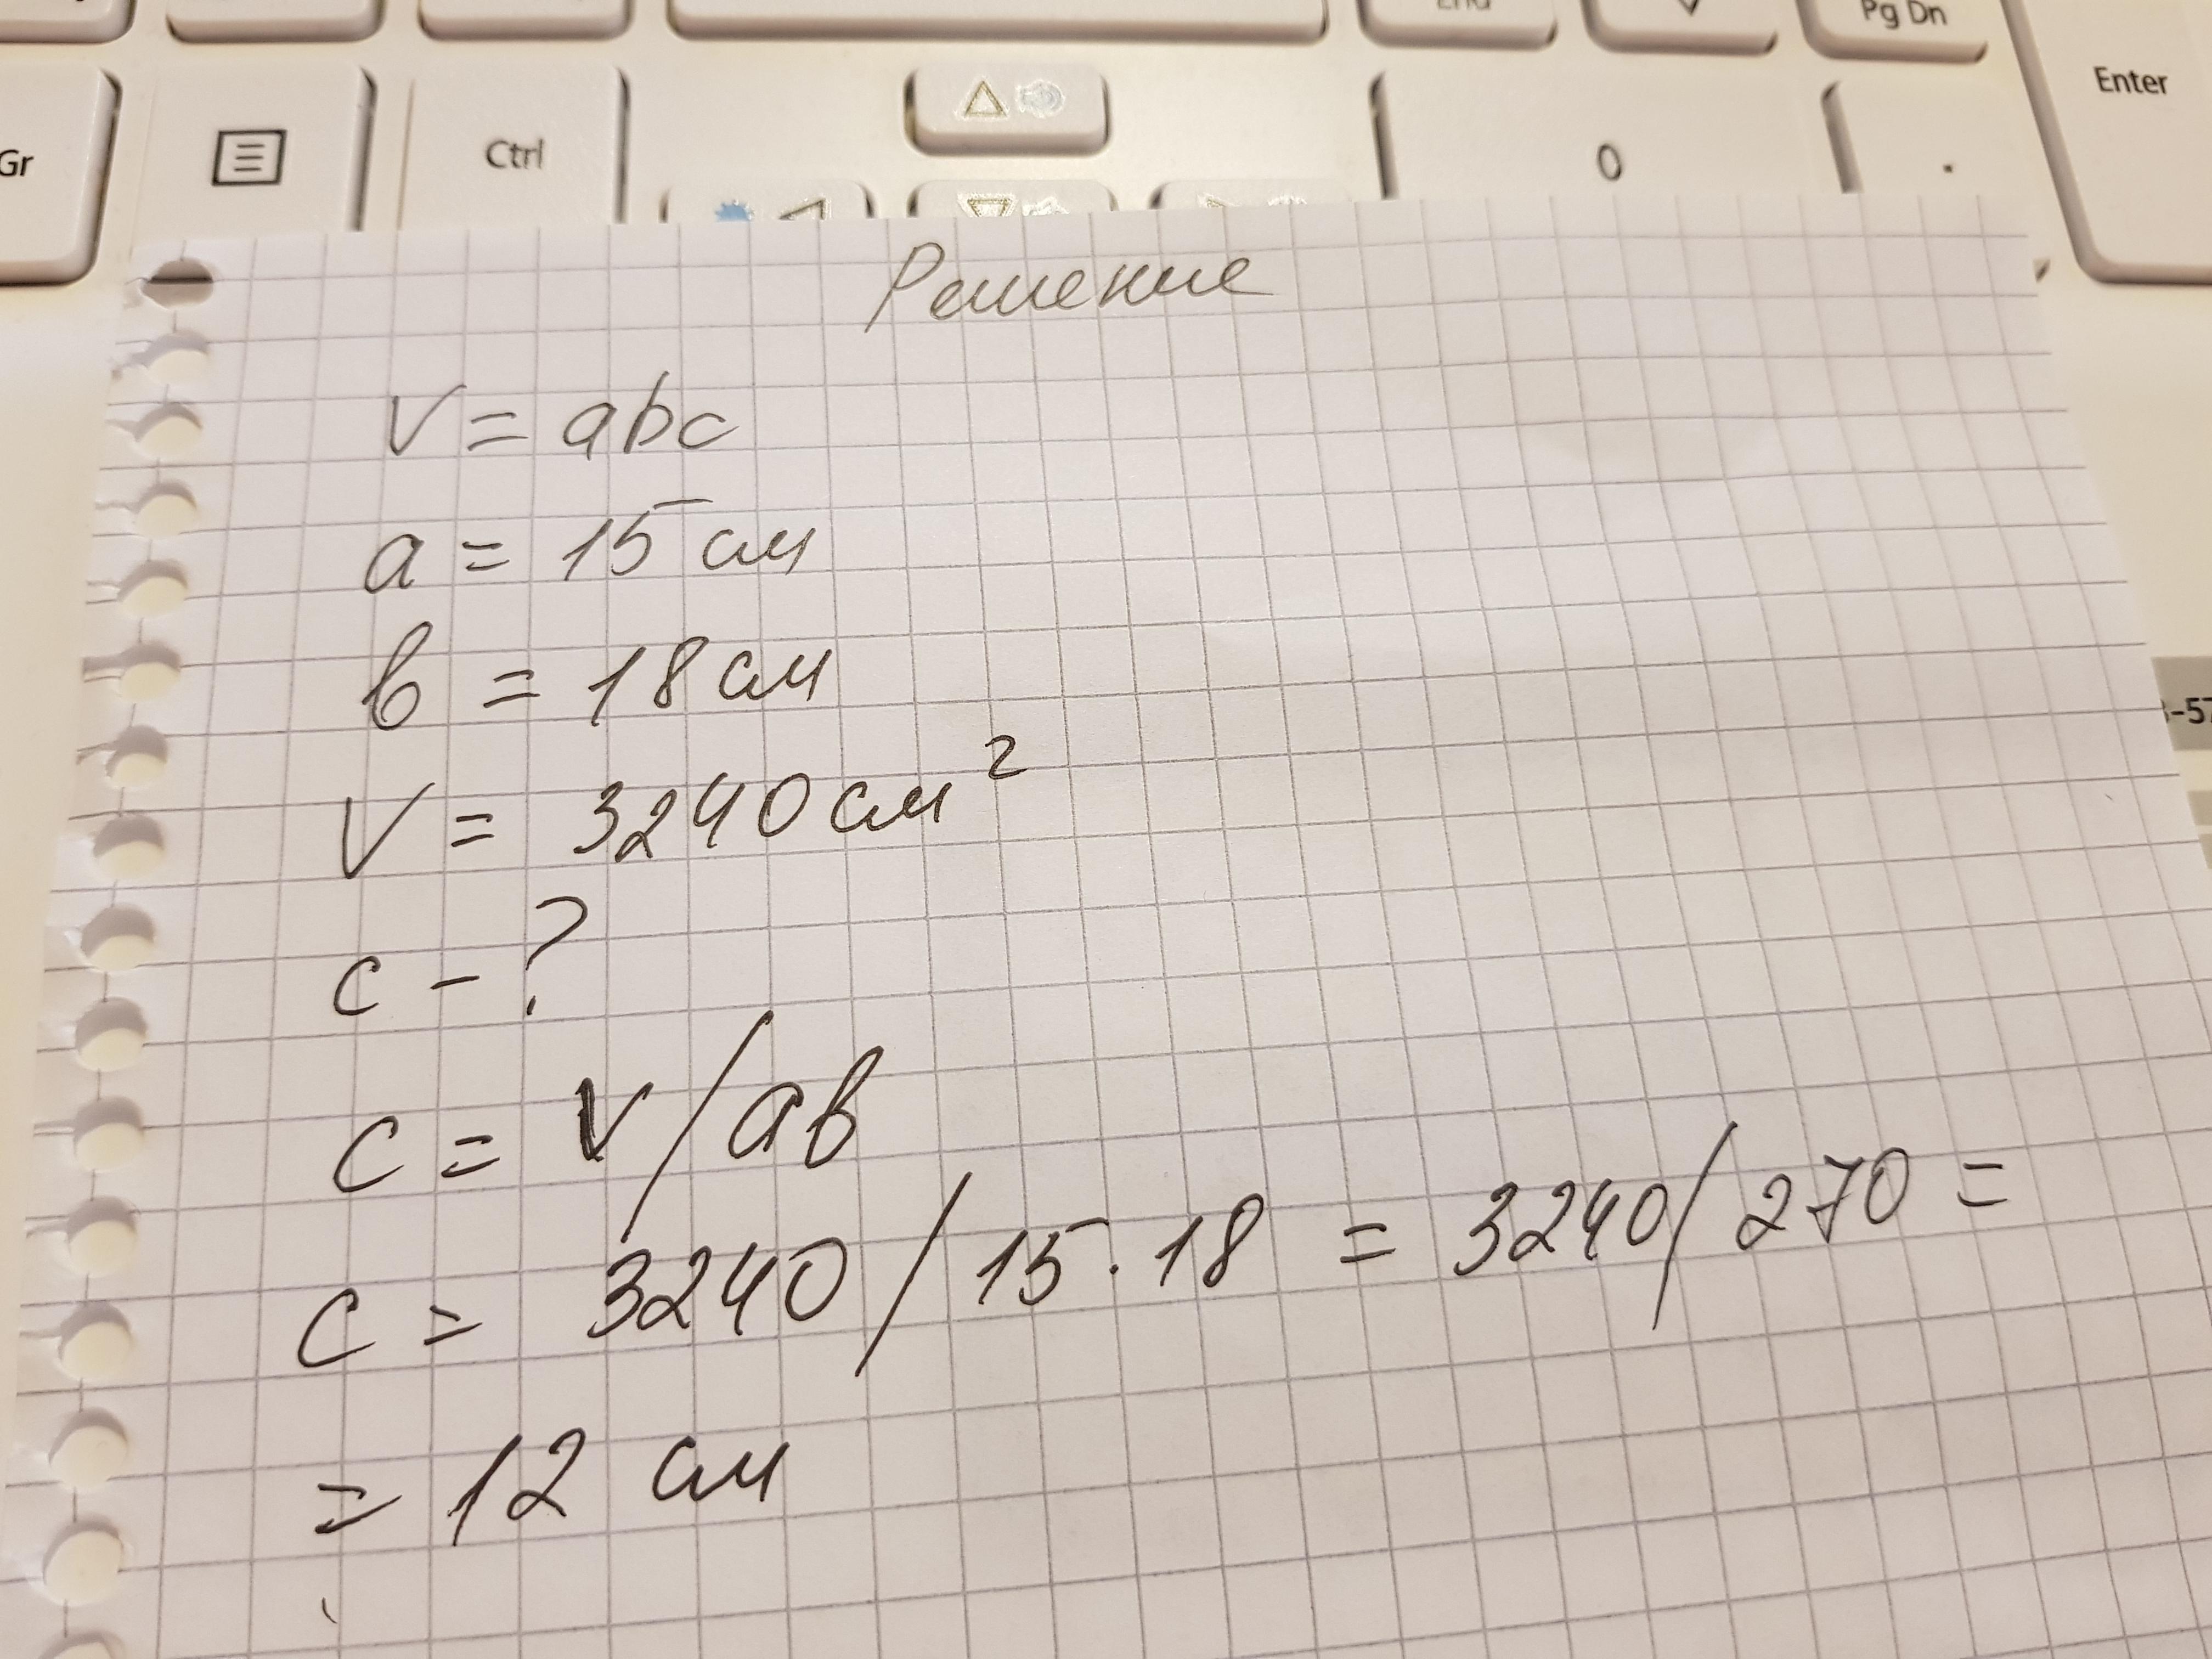 End
Pg Dn
Gr
Ctrl
0
.
Enter
Решение
V = abc
a = 15 см
b = 18 см
V = 3240 см²
c - ?
c = V/ab
c = 3240 / 15 · 18 = 3240/270 =
= 12 см
-57